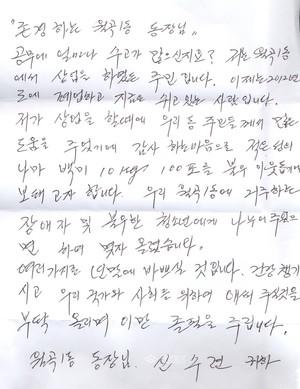 "존경하는 원곡1동 동장님"
공무에 얼마나 수고가 많으신지요? 저는 원곡1동
에서 상업을 하였든 주민 입니다. 이제는 2021년
로에 폐업하고 지금은 쉬고 있는 사람 입니다.
저가 상업을 할때에 우리 동 주민들께서 많은
도움을 주셨기에 감사 하는마음으로 적은 성의
나마 백미 10kg 100포를 불우 이웃돕기에
보태고자 합니다. 우리 원곡1동에 거주하는
장애자 및 불우한 청소년에게 나누어 주었으
면 하여 몇자 올렸습니다.
여러가지로 년말에 바쁘실 것 합니다. 건강 챙기
시고 우리 국가와 사회를 위하여 애써 주실것을
부탁 올리며 이만 졸필을 줍니다.
원곡1동 동장님. 신 수연 귀하